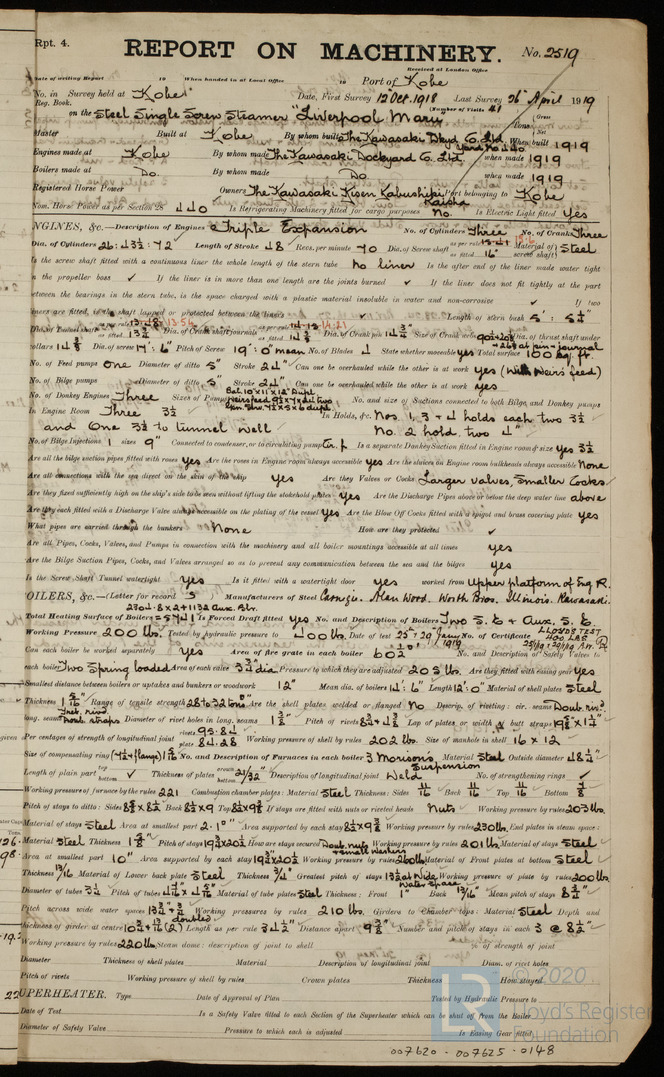 Rpt. 4.
REPORT ON MACHINERY. No. 2519
Date of writing Report 19 When handed in at Local Office 19 Port of Kobe
Received at London Office
No. in Survey held at Kobe Date, First Survey 12 Oct. 1918 Last Survey 26 April 1919
Reg. Book. (Number of Visits 41
on the Steel Single Screw Steamer "Liverpool Maru" Tons Gross Net
Master Built at Kobe By whom built The Kawasaki Dkyd Co. Ltd. Yard No 440 When built 1919
Engines made at Kobe By whom made The Kawasaki Dockyard Co. Ltd. when made 1919
Boilers made at Do. By whom made Do. when made 1919
Registered Horse Power Owners The Kawasaki Kisen Kabushiki Kaisha Port belonging to Kobe
Nom. Horse Power as per Section 28 440 Is Refrigerating Machinery fitted for cargo purposes No. Is Electric Light fitted Yes
NGINES, &c.—Description of Engines a Triple Expansion No. of Cylinders Three No. of Cranks Three
Dia. of Cylinders 26 : 43½ : 72 Length of Stroke 48 Revs. per minute 70 Dia. of Screw shaft as per rule as fitted 16" Material of screw shaft Steel
Is the screw shaft fitted with a continuous liner the whole length of the stern tube No liner Is the after end of the liner made water tight
in the propeller boss ✓ If the liner is in more than one length are the joints burned ✓ If the liner does not fit tightly at the part
between the bearings in the stern tube, is the space charged with a plastic material insoluble in water and non-corrosive ✓ If two
liners are fitted, is the shaft lapped or protected between the liners ✓ Length of stern bush 5' : 5¼"
Dia. of Tunnel shaft as per rule 13.48 13.56 as fitted 13¾ Dia. of Crank shaft journals as per rule 14.21 as fitted 14¾ Dia. of Crank pin 14¾" Size of Crank webs Dia. of thrust shaft under
collars 14¾ Dia. of screw 17' : 6" Pitch of Screw 19' : 0" mean No. of Blades 4 State whether moveable yes Total surface 100 sq. ft.
No. of Feed pumps One Diameter of ditto 5" Stroke 24" Can one be overhauled while the other is at work yes (with Weirs feed)
No. of Bilge pumps Diameter of ditto 5" Stroke 24" Can one be overhauled while the other is at work yes
No. of Donkey Engines Three Sizes of Pumps No. and size of Suctions connected to both Bilge and Donkey pumps
In Engine Room Three 3½ In Holds, &c. Nos 1, 3 + 4 holds each two 3½
and One 3½ to tunnel well No. 2 hold two 4"
No. of Bilge Injections 1 sizes 9" Connected to condenser, or to circulating pump Cir. p. Is a separate Donkey Suction fitted in Engine room & size yes 3½
Are all the bilge suction pipes fitted with roses yes Are the roses in Engine room always accessible yes Are the sluices on Engine room bulkheads always accessible None
Are all connections with the sea direct on the skin of the ship yes Are they Valves or Cocks Larger valves, smaller Cocks
Are they fixed sufficiently high on the ship's side to be seen without lifting the stokehold plates yes Are the Discharge Pipes above or below the deep water line above
Are they each fitted with a Discharge Valve always accessible on the plating of the vessel yes Are the Blow Off Cocks fitted with a spigot and brass covering plate yes
What pipes are carried through the bunkers None How are they protected ✓
Are all Pipes, Cocks, Valves, and Pumps in connection with the machinery and all boiler mountings accessible at all times yes
Are the Bilge Suction Pipes, Cocks, and Valves arranged so as to prevent any communication between the sea and the bilges yes
Is the Screw Shaft Tunnel watertight yes Is it fitted with a watertight door yes worked from Upper platform of Eng R.
OILERS, &c.—(Letter for record S Manufacturers of Steel Carnegie. Alan Wood. Worth Bros. Illinois. Kawasaki.
2304.8 x 2 + 1132 Aux. Blr.
Total Heating Surface of Boilers = 5741 Is Forced Draft fitted yes No. and Description of Boilers Two S. E. + Aux. S. E.
Working Pressure 200 lbs. Tested by hydraulic pressure to 400 lbs. Date of test 25 + 29 Jany. 1919 No. of Certificate LLOYDS TEST 400 LBS
Can each boiler be worked separately yes Area of fire grate in each boiler 60½ No. and Description of Safety Valves to
each boiler Two Spring loaded Area of each valve 3¾ dia Pressure to which they are adjusted 205 lbs. Are they fitted with easing gear yes
Smallest distance between boilers or uptakes and bunkers or woodwork 12" Mean dia. of boilers 14' : 6" Length 12' : 0" Material of shell plates Steel
Thickness Range of tensile strength 28 to 32 tons Are the shell plates welded or flanged No Descrip. of riveting: cir. seams Doub. riv'd.
long. seams Doub. straps Diameter of rivet holes in long. seams 1⅜" Pitch of rivets Lap of plates or width of butt straps
Per centages of strength of longitudinal joint rivets 95.84 plate 84.28 Working pressure of shell by rules 202 lbs. Size of manhole in shell 16 x 12
Size of compensating ring No. and Description of Furnaces in each boiler 3 Morisons Suspension Material Steel Outside diameter 48½"
Length of plain part top bottom ✓ Thickness of plates crown bottom Description of longitudinal joint Weld No. of strengthening rings ✓
Working pressure of furnace by the rules 221 Combustion chamber plates: Material Steel Thickness: Sides 11/16 Back 11/16 Top 11/16 Bottom
Pitch of stays to ditto: Sides Back Top If stays are fitted with nuts or riveted heads Nuts Working pressure by rules 203 lbs.
Material of stays Steel Area at smallest part 2.1" Area supported by each stay Working pressure by rules 230 lbs. End plates in steam space:
Material Steel Thickness Pitch of stays How are stays secured Doub. nuts Working pressure by rules 201 lbs. Material of stays Steel
Area at smallest part 10" Area supported by each stay Working pressure by rules 260 lbs Material of Front plates at bottom Steel
Thickness 13/16 Material of Lower back plate Steel Thickness 3/4" Greatest pitch of stays Working pressure of plate by rules 200 lbs.
Diameter of tubes 3¼ Pitch of tubes Material of tube plates Steel Thickness: Front 1" Back 13/16" Mean pitch of stays
Pitch across wide water spaces Working pressures by rules 210 lbs. Girders to Chamber tops: Material Steel Depth and
thickness of girder at centre Length as per rule Distance apart Number and pitch of stays in each 3 @ 8½"
Working pressure by rules 220 lbs Steam dome: description of joint to shell % of strength of joint
Diameter Thickness of shell plates Material Description of longitudinal joint Diam. of rivet holes
Pitch of rivets Working pressure of shell by rules Crown plates Thickness How stayed
UPERHEATER. Type Date of Approval of Plan Tested by Hydraulic Pressure to
Date of Test Is a Safety Valve fitted to each Section of the Superheater which can be shut off from the Boiler
Diameter of Safety Valve Pressure to which each is adjusted Is Easing Gear fitted
© 2020
Lloyd's Register
Foundation
007620 - 007625 - 0148